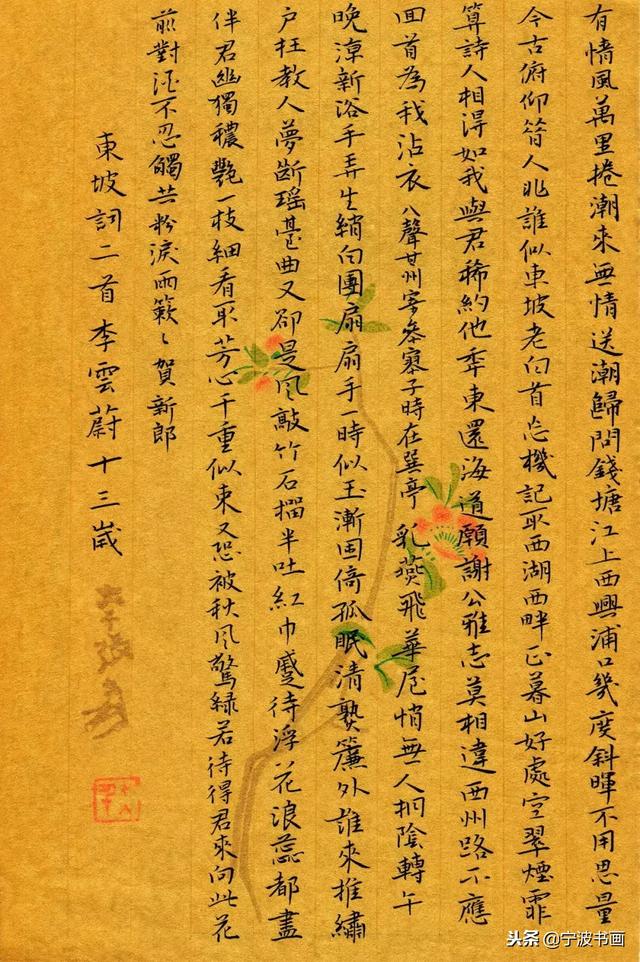 有情風萬里捲潮來無情送潮歸問錢塘江上西興浦口幾度斜暉不用思量
今古俯仰昔人非誰似東坡老白首忘機記取西湖西畔正暮山好處空翠煙霏
算詩人相得如我與君稀約他年東還海道願謝公雅志莫相違西州路不應
回首為我沾衣 八聲甘州寄參寥子時在巽亭 乳燕飛華屋悄無人桐陰轉午
晚涼新浴手弄生綃白團扇扇手一時似玉漸困倚孤眠清熟簾外誰來推繡
戶枉教人夢斷瑤臺曲又卻是風敲竹石榴半吐紅巾蹙待浮花浪蕊都盡
伴君幽獨穠艷一枝細看取芳心千重似束又恐被秋風驚綠若待得君來向此花
前對酒不忍觸共粉淚雨簌〻賀新郎
東坡詞二首李雲蔚十三歲
头条 @宁波书画